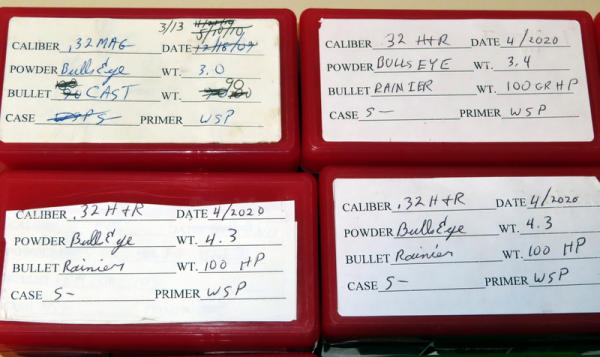 3/13 5/10/10
CALIBER .32 MAG DATE 12/18/09
POWDER BullsEye WT. 3.0
BULLET CAST WT. 90
CASE PRIMER WSP
CALIBER .32 H+R DATE 4/2020
POWDER BULLSEYE WT. 3.4
BULLET RAINIER WT. 100 GR HP
CASE S- PRIMER WSP
CALIBER .32 H+R DATE 4/2020
POWDER BullsEye WT. 4.3
BULLET Rainier WT. 100 HP
CASE S- PRIMER WSP
CALIBER .32 H+R DATE 4/2020
POWDER BullsEye WT. 4.3
BULLET Rainier WT. 100 HP
CASE S- PRIMER WSP